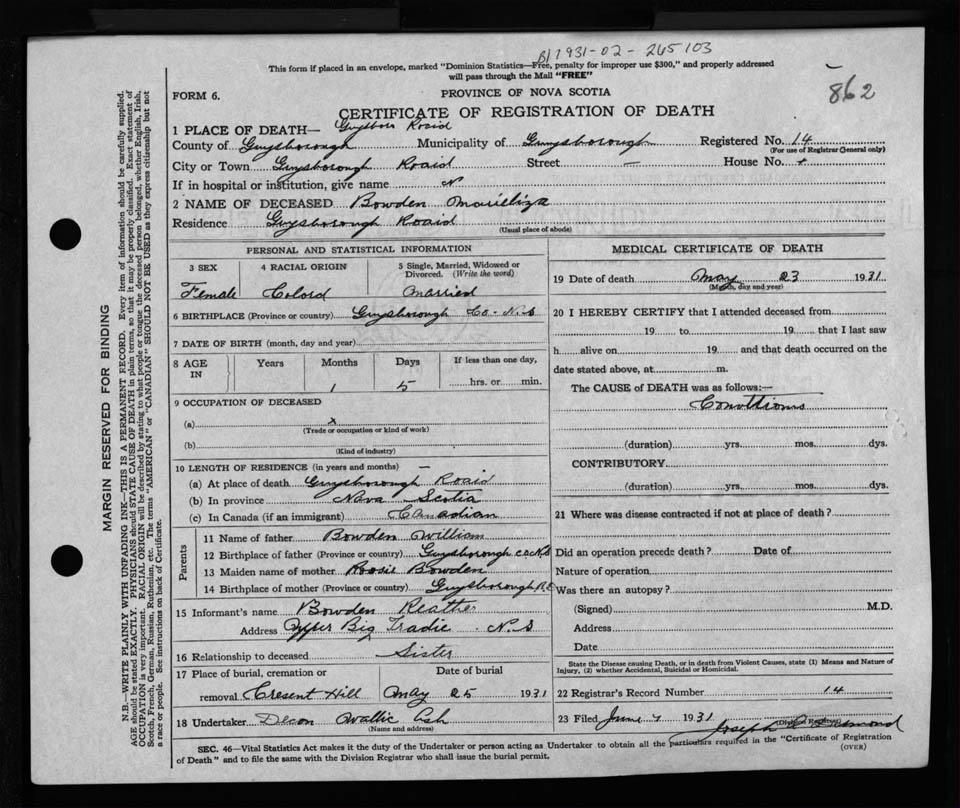 B/1931-02-265103
This form if placed in an envelope, marked "Dominion Statistics—Free, penalty for improper use $300," and properly addressed
will pass through the Mail "FREE"
862
FORM 6.
PROVINCE OF NOVA SCOTIA
CERTIFICATE OF REGISTRATION OF DEATH
1 PLACE OF DEATH— Roaid
County of Guysborough Municipality of Guysborough Registered No. 14
(For use of Registrar General only)
City or Town Guysborough Roaid Street — House No.
If in hospital or institution, give name N
2 NAME OF DECEASED Bowden Marieliza
Residence Guysborough Roaid
(Usual place of abode)
PERSONAL AND STATISTICAL INFORMATION
3 SEX 4 RACIAL ORIGIN 5 Single, Married, Widowed or
Divorced. (Write the word)
Female Colord Married
6 BIRTHPLACE (Province or country) Guysborough Co. N.S
7 DATE OF BIRTH (month, day and year)
8 AGE IN Years Months Days If less than one day,
1 5 hrs. or min.
9 OCCUPATION OF DECEASED
(a) x
(Trade or occupation or kind of work)
(b)
(Kind of industry)
10 LENGTH OF RESIDENCE (in years and months) —
(a) At place of death Guysborough Roaid
(b) In province Nova Scotia
(c) In Canada (if an immigrant) Canadian
Parents
11 Name of father Bowden William
12 Birthplace of father (Province or country) Guysborough Co N.S
13 Maiden name of mother Roosie Bowden
14 Birthplace of mother (Province or country) Guysborough
15 Informant's name Bowden
Address Upper Big Tradie N.S
16 Relationship to deceased Sister
17 Place of burial, cremation or Date of burial
removal Cresent Hill May 25 1931
18 Undertaker Decon Wallic Ash
(Name and address)
MEDICAL CERTIFICATE OF DEATH
19 Date of death May 23 1931
(Month, day and year)
20 I HEREBY CERTIFY that I attended deceased from
19 to 19 that I last saw
h alive on 19 and that death occurred on the
date stated above, at m.
The CAUSE of DEATH was as follows:—
(duration) yrs. mos. dys.
CONTRIBUTORY
(duration) yrs. mos. dys.
21 Where was disease contracted if not at place of death?
Did an operation precede death? Date of
Nature of operation
Was there an autopsy?
(Signed) M.D.
Address
Date
State the Disease causing Death, or in death from Violent Causes, state (1) Means and Nature of
Injury, (2) whether Accidental, Suicidal or Homicidal.
22 Registrar's Record Number 14
23 Filed June 1931 Joseph
Division Registrar
SEC. 46—Vital Statistics Act makes it the duty of the Undertaker or person acting as Undertaker to obtain all the particulars required in the "Certificate of Registration
of Death" and to file the same with the Division Registrar who shall issue the burial permit.
(OVER)
MARGIN RESERVED FOR BINDING
N.B.—WRITE PLAINLY WITH UNFADING INK—THIS IS A PERMANENT RECORD. Every item of information should be carefully supplied.
AGE should be stated EXACTLY. PHYSICIANS should STATE CAUSE OF DEATH in plain terms, so that it may be properly classified. Exact statement of
OCCUPATION is very important. RACIAL ORIGIN will be described by stating to what people or tongue the deceased person belonged, whether English, Irish,
Scotch, French, German, Russian, Ruthenian, etc. The terms "AMERICAN" or "CANADIAN" SHOULD NOT BE USED as they express citizenship but not
a race or people. See instructions on back of Certificate.